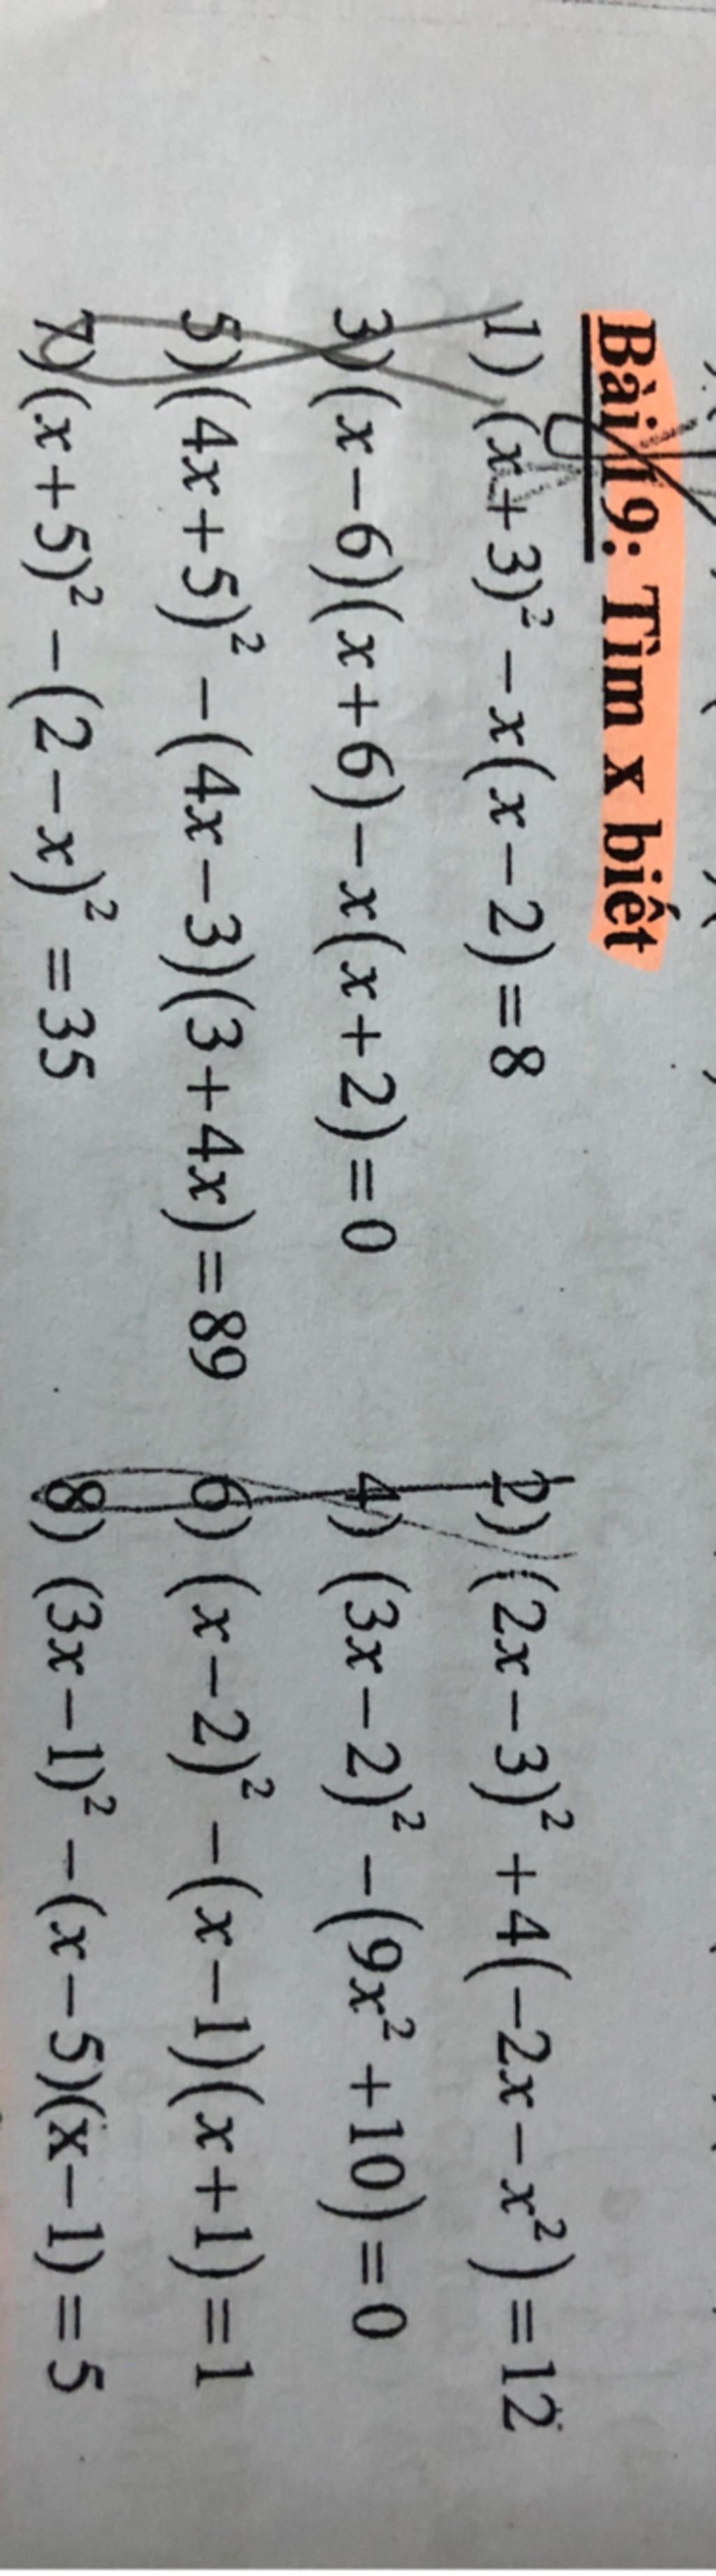 Bài 19: Tìm x biết
1) (x+3)² – x(x – 2) = 8 2) (2x – 3)² + 4(–2x – x²) = 12
3) (x – 6)(x + 6) – x(x + 2) = 0 4) (3x – 2)² – (9x² + 10) = 0
5) (4x + 5)² – (4x – 3)(3 + 4x) = 89 6) (x – 2)² – (x – 1)(x + 1) = 1
7) (x + 5)² – (2 – x)² = 35 8) (3x – 1)² – (x – 5)(x – 1) = 5